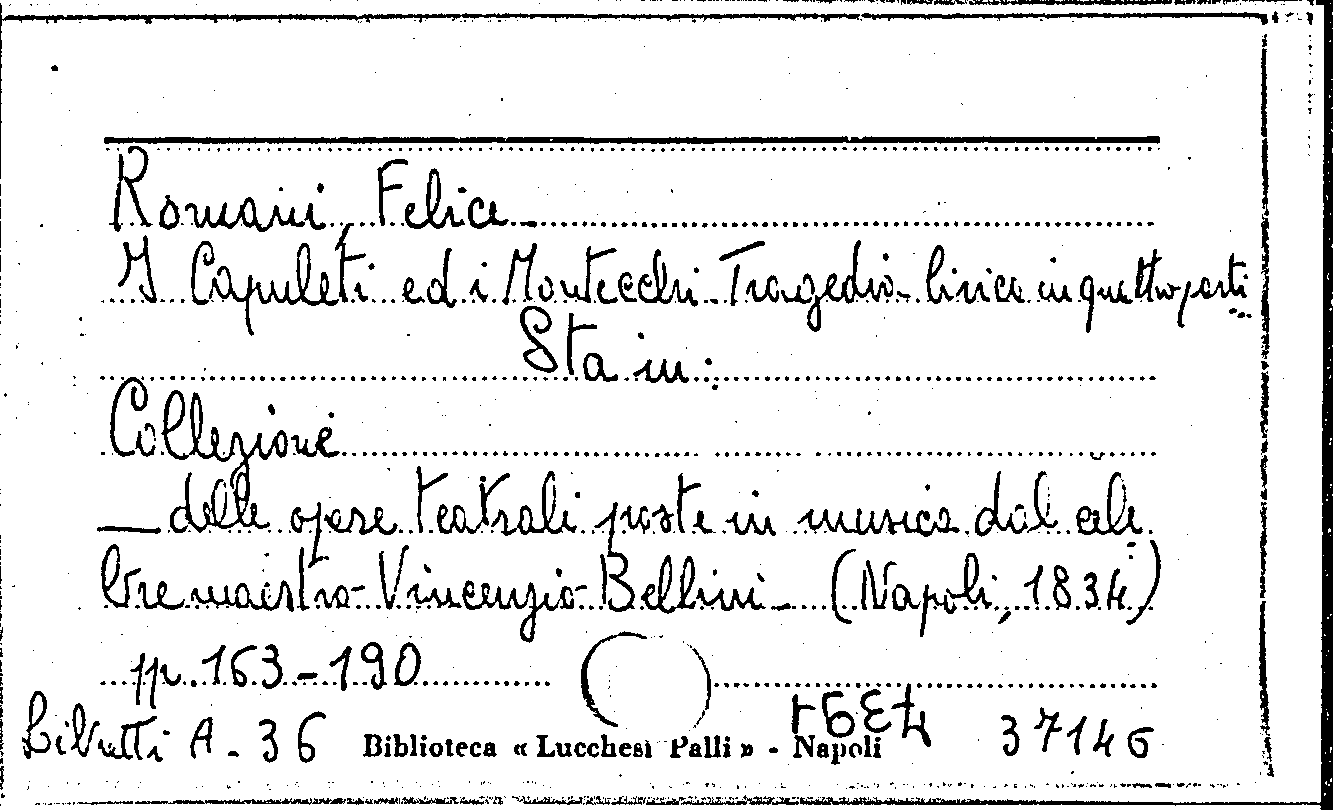 Romani, Felice
I Capuleti ed i Montecchi Tragedia lirica in quattro parti
Sta in:
Collezione
— delle opere teatrali poste in musica dal cele
bre maestro Vincenzio Bellini (Napoli, 1834)
pp. 163-190
Libretti A-36 Biblioteca « Lucchesi Palli » - Napoli 37146